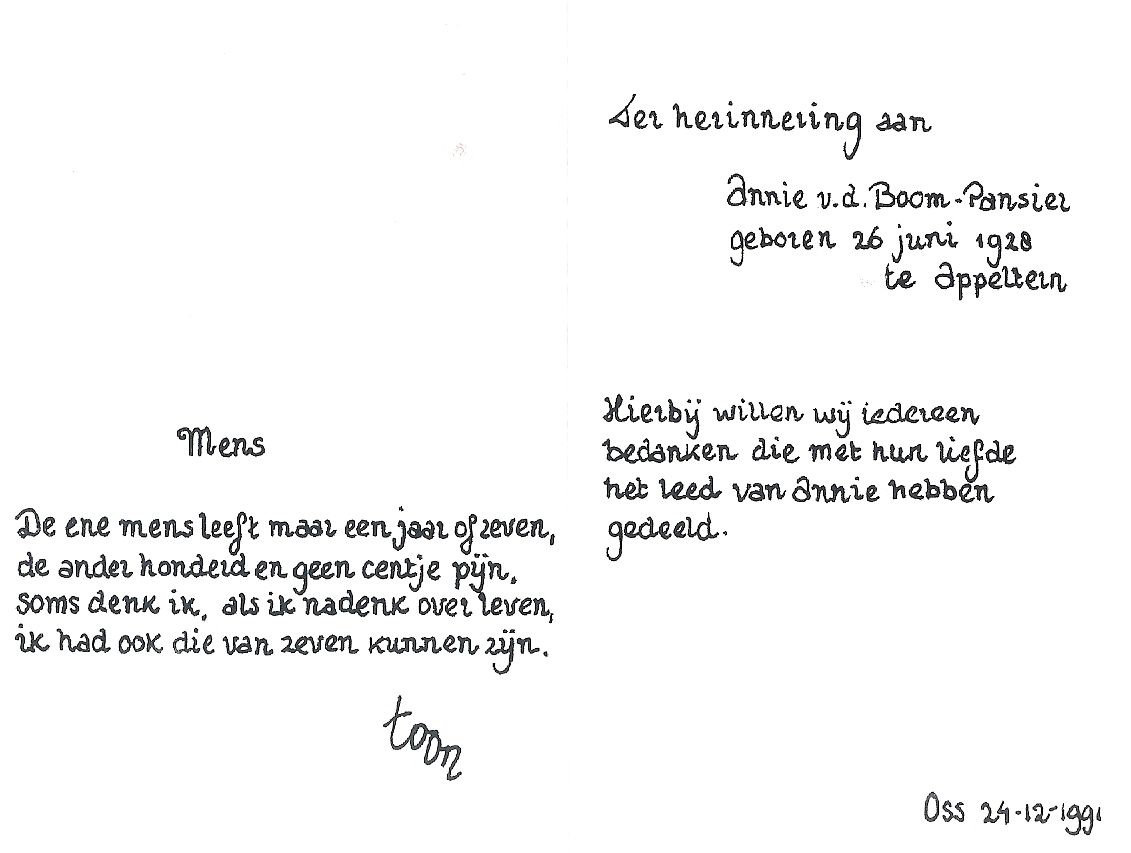 Mens
De ene mens leeft maar een jaar of zeven,
de ander honderd en geen centje pijn,
soms denk ik, als ik nadenk over leven,
ik had ook die van zeven kunnen zijn.
toon
Ter herinnering aan
Annie v.d. Boom-Pansier
geboren 26 juni 1928
te Appeltern
Hierbij willen wij iedereen
bedanken die met hun liefde
het leed van Annie hebben
gedeeld.
Oss 24-12-1991